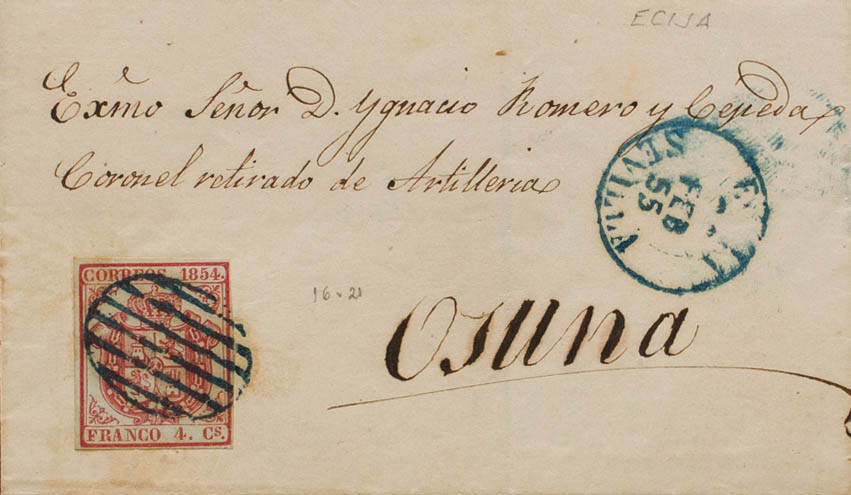 ECIJA
Exmo Señor D. Ygnacio Romero y Cepeda
Coronel retirado de Artilleria
SEVILLA
FEB
55
CORREOS 1854.
16 21
Osuna
FRANCO 4. Cs.